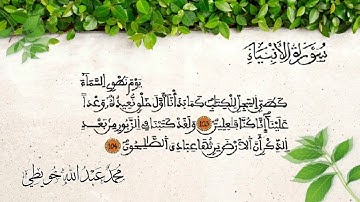 سورة الأنبياء
يوم نطوي السماء
كطي السجل للكتب كما بدأنا أول خلق نعيده وعدا
علينا إنا كنا فعلين 103 ولقد كتبنا في الزبور من بعد
الذكر أن الأرض يرثها عبادي الصلحون 104
محمد عبد الله خويطي